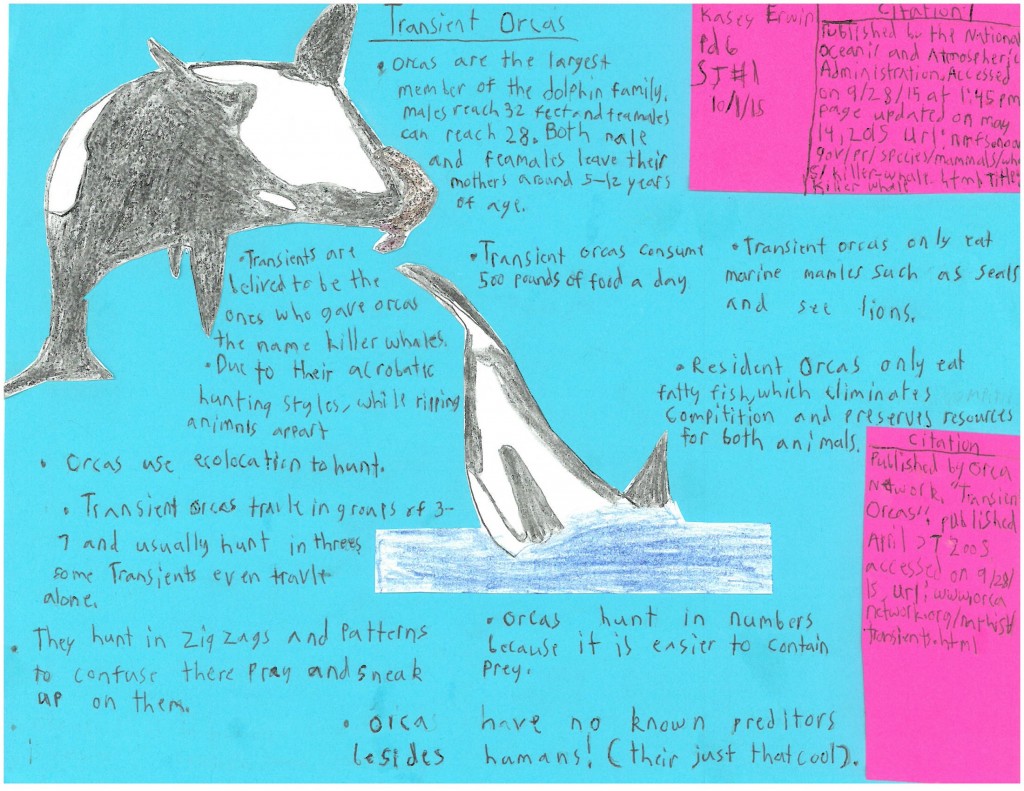 Transient Orcas
• Orcas are the largest
member of the dolphin family.
males reach 32 feet and feamales
can reach 28. Both male
and feamales leave their
mothers around 5-12 years
of age.
Kasey Erwin
Pd 6
SJ#1
10/1/15
Citation
Published by the National
Oceanic and Atmospheric
Administration. Accessed
on 9/28/15 at 1:45 pm
page updated on may
14, 2015 url: nmfs.noaa
gov/pr/species/mammals/wha
s/killer-whale.html. Title:
Killer whale
• Transients are
belived to be the
ones who gave orcas
the name killer whales.
• Due to their acrobatic
hunting styles, while ripping
animals appart
• Transient orcas consume
500 pounds of food a day
• Transient orcas only eat
marine mamles such as seals
and see lions.
• Resident Orcas only eat
fatty fish, which eliminates
Compitition and preserves resources
for both animals.
• Orcas use ecolocation to hunt.
• Transient orcas travle in groups of 3-
7 and usually hunt in threes
some Transients even travle
alone.
• They hunt in zig zags and patterns
to confuse there pray and sneak
up on them.
• orcas hunt in numbers
because it is easier to contain
prey.
• orca have no known preditors
besides humans! (their just that cool).
Citation
Published by Orca
Network. "Transien
Orcas", published
April 2005
accessed on 9/28/
15 url: www.orca
network.org/nathist/
transients.html